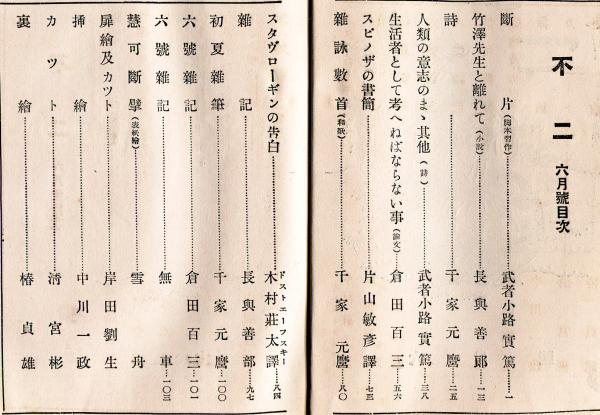 不二 六月號目次
斷片(脚本習作)……武者小路實篤…一
竹澤先生と離れて(小説)……長與善郞…一三
詩……千家元麿…二五
人類の意志のまゝ其他(詩)……武者小路實篤…三八
生活者として考へねばならない事(論文)……倉田百三…五六
スピノザの書簡……片山敏彦譯…七三
雜詠數首(和歌)……千家元麿…八〇
スタヴローギンの告白……ドストエーフスキー 木村莊太譯…八四
雜記……長與善郞…九七
初夏雜筆……千家元麿…一〇〇
六號雜記……倉田百三…一〇一
六號雜記……無車…一〇三
慧可斷臂(表紙繪)……雪舟
扉繪及カット……岸田劉生
挿繪……中川一政
カット……淸宮彬
裏繪……椿貞雄